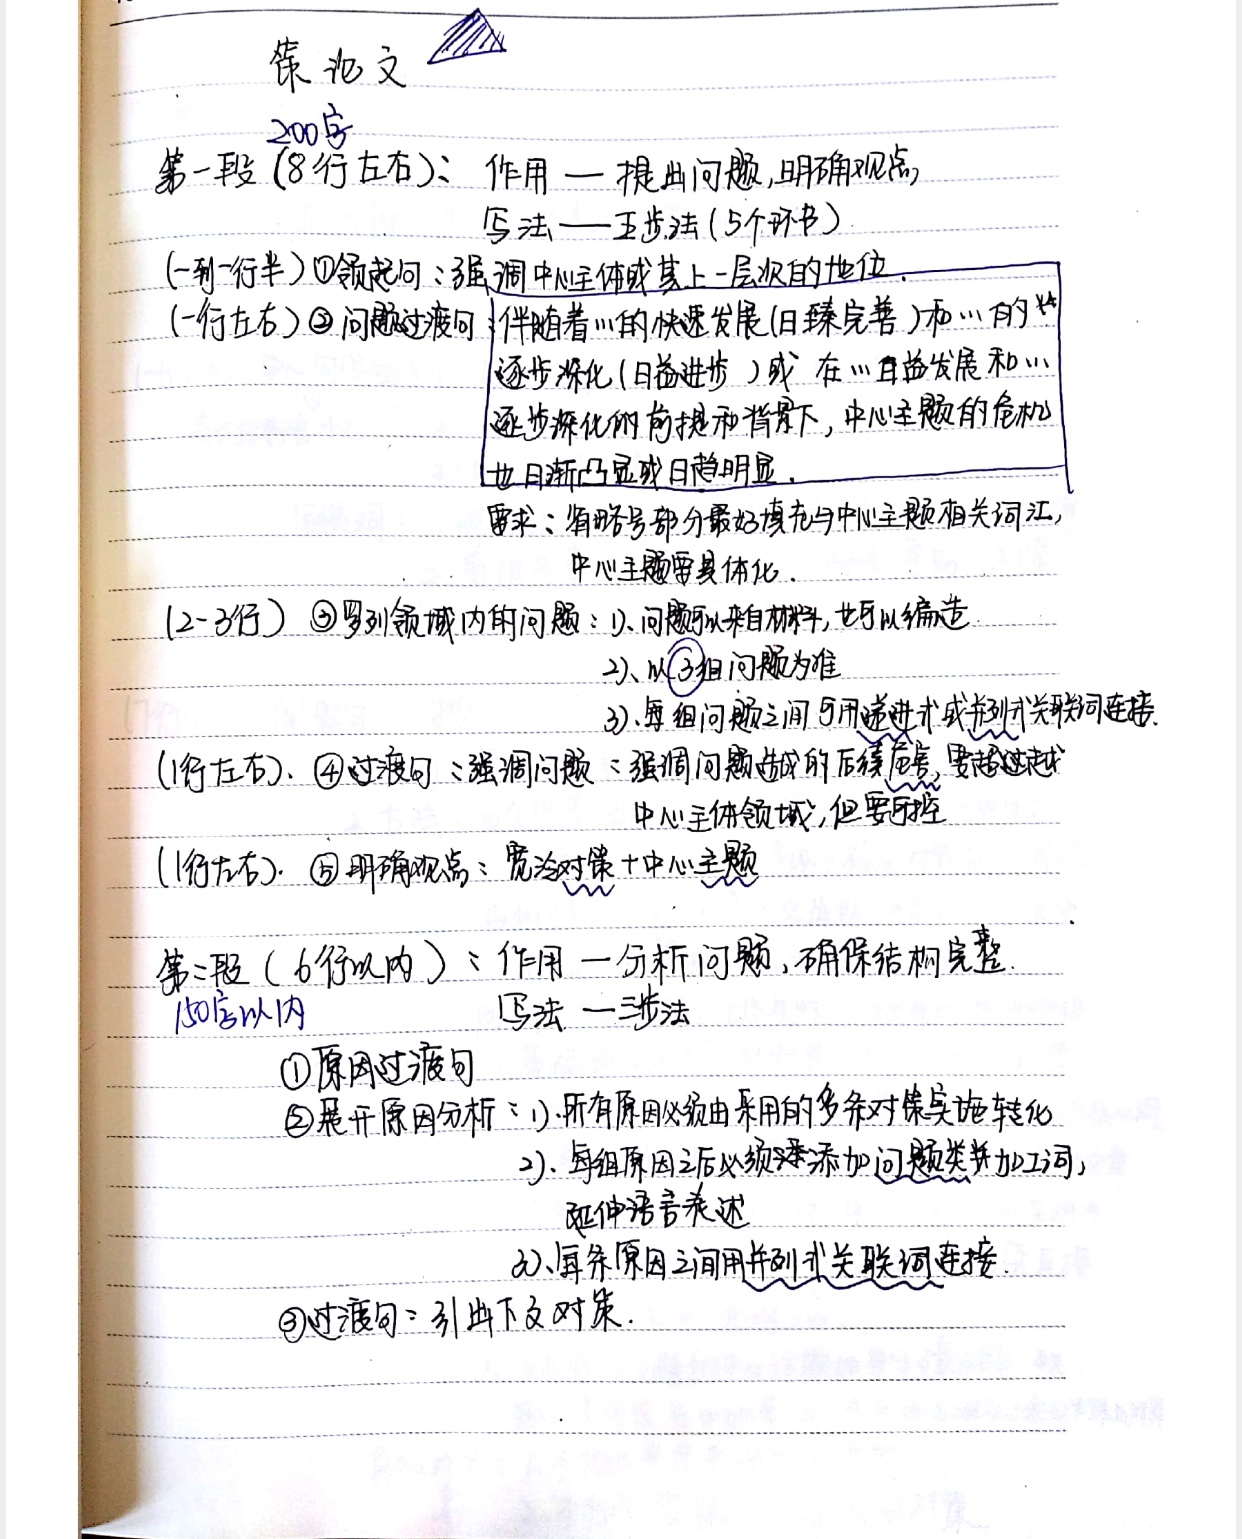 策论文
200字
第一段(8行左右): 作用 — 提出问题,明确观点,
写法 — 五步法(5个环节)
(一到一行半)①领起句:强调中心主体或其上一层次的地位.
(一行左右)②问题过渡句:伴随着…的快速发展(日臻完善)和…的
逐步深化(日益进步)或 在…日益发展和…
逐步深化的前提和背景下,中心主题的危机
也日渐凸显或日趋明显.
要求:省略号部分最好填充与中心主题相关词汇,
中心主题要具体化.
(2-3行) ③罗列领域内的问题:1)、问题可以来自材料,也可以编造
2)、以③组问题为准
3)、每组问题之间可用递进式或并列式关联词连接.
(1行左右). ④过渡句:强调问题:强调问题造成的后续危害,要超过越
中心主体领域,但要可控
(1行左右). ⑤明确观点:宽泛对策+中心主题
第二段(6行以内): 作用 — 分析问题,确保结构完整.
150字以内 写法 — 三步法
①原因过渡句
②展开原因分析:1)、所有原因必须由采用的多条对策实施转化
2)、每组原因之后必须添加问题类并加工词,
延伸语言表述
3)、每条原因之间用并列式关联词连接.
③过渡句:引出下文对策.